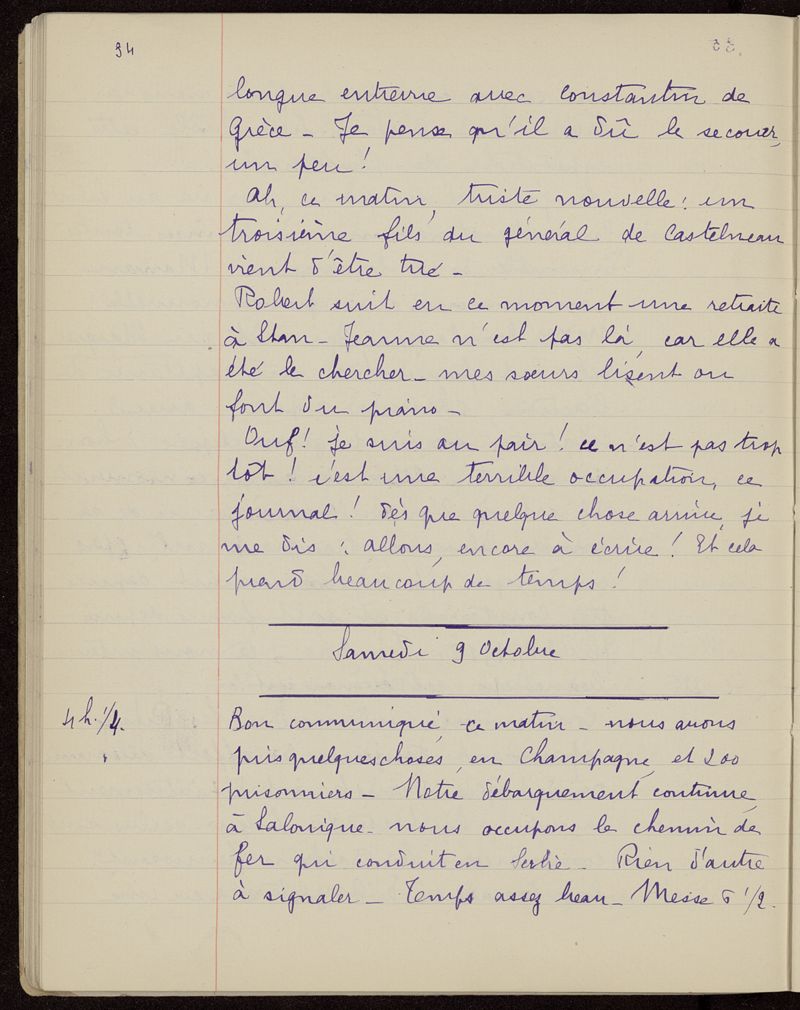 94
longue entrevue avec Constantin de
Grèce - Je pense qu'il a dû le secouer,
un peu!
Ah, ce matin, triste nouvelle: un
troisième fils du général de Castelneau
vient d'être tué -
Robert suit en ce moment une retraite
à Stan - Jeanne n'est pas là, car elle a
été le chercher - mes sœurs lisent ou
font du piano -
Ouf! je suis au pair! ce n'est pas trop
tôt! c'est une terrible occupation, ce
journal! dès que quelque chose arrive, je
me dis: allons, encore à écrire! Et cela
prend beaucoup de temps!
Samedi 9 Octobre
4 h. 1/4.
Bon communiqué, ce matin - nous avons
pris quelques choses, en Champagne, et 200
prisonniers - Notre débarquement continue,
à Salonique - nous occupons le chemin de
fer qui conduit en Serbie - Rien d'autre
à signaler - Temps assez beau - Messe 6 1/2.